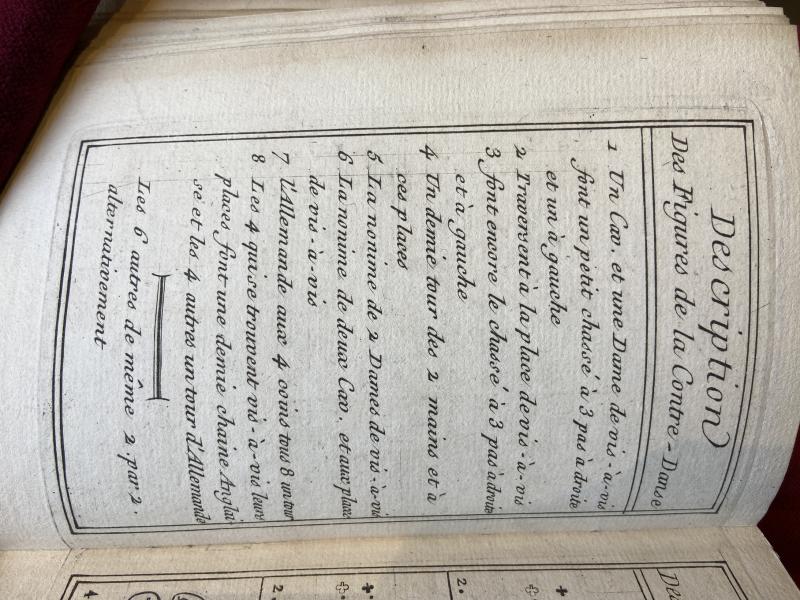 Description
Des Figures de la Contre-Danse
1 Un Cav. et une Dame de vis-à-vis
font un petit chassé à 3 pas à droite
et un à gauche
2 Traversent à la place de vis-à-vis
3 font encore le chassé à 3 pas à droite
et à gauche
4 Un demie tour des 2 mains et à
ces places
5 La nonime de 2 Dames de vis-à-vis
6 La nonime de deux Cav. et aux places
de vis-à-vis
7 L'Allemande aux 4 coins tous 8 un tour
8 Les 4 qui se trouvent vis-à-vis leurs
places font une demie chaine Anglai
se et les 4 autres un tour d'Allemande
Les 6 autres de même 2 par 2.
alternativement
Des
2.
2.
4